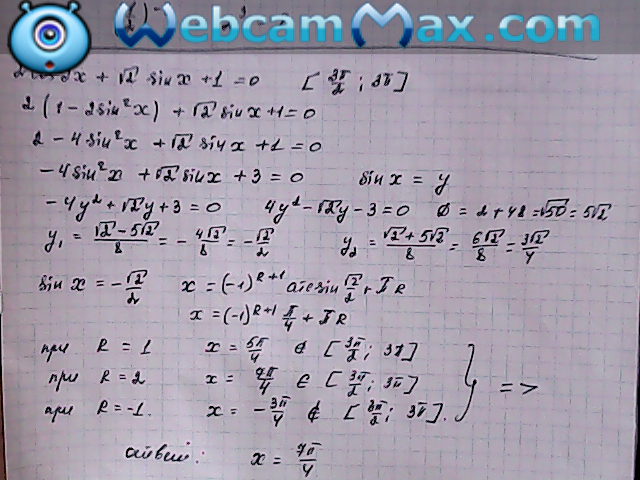 WebcamMax.com
2cos2x + √2 sinx + 1 = 0 [3π/2; 3π]
2(1 - 2sin²x) + √2 sinx + 1 = 0
2 - 4sin²x + √2 sinx + 1 = 0
-4sin²x + √2 sinx + 3 = 0 sinx = y
-4y² + √2y + 3 = 0 4y² - √2y - 3 = 0 D = 2 + 48 = √50 = 5√2
y₁ = (√2 - 5√2)/8 = -4√2/8 = -√2/2 y₂ = (√2 + 5√2)/8 = 6√2/8 = 3√2/4
sin x = -√2/2 x = (-1)^(k+1) arcsin √2/2 + πk
x = (-1)^(k+1) π/4 + πk
при k = 1 x = 5π/4 ∉ [3π/2; 3π]
при k = 2 x = 7π/4 ∈ [3π/2; 3π] =>
при k = -1. x = -3π/4 ∉ [3π/2; 3π].
ответ: x = 7π/4